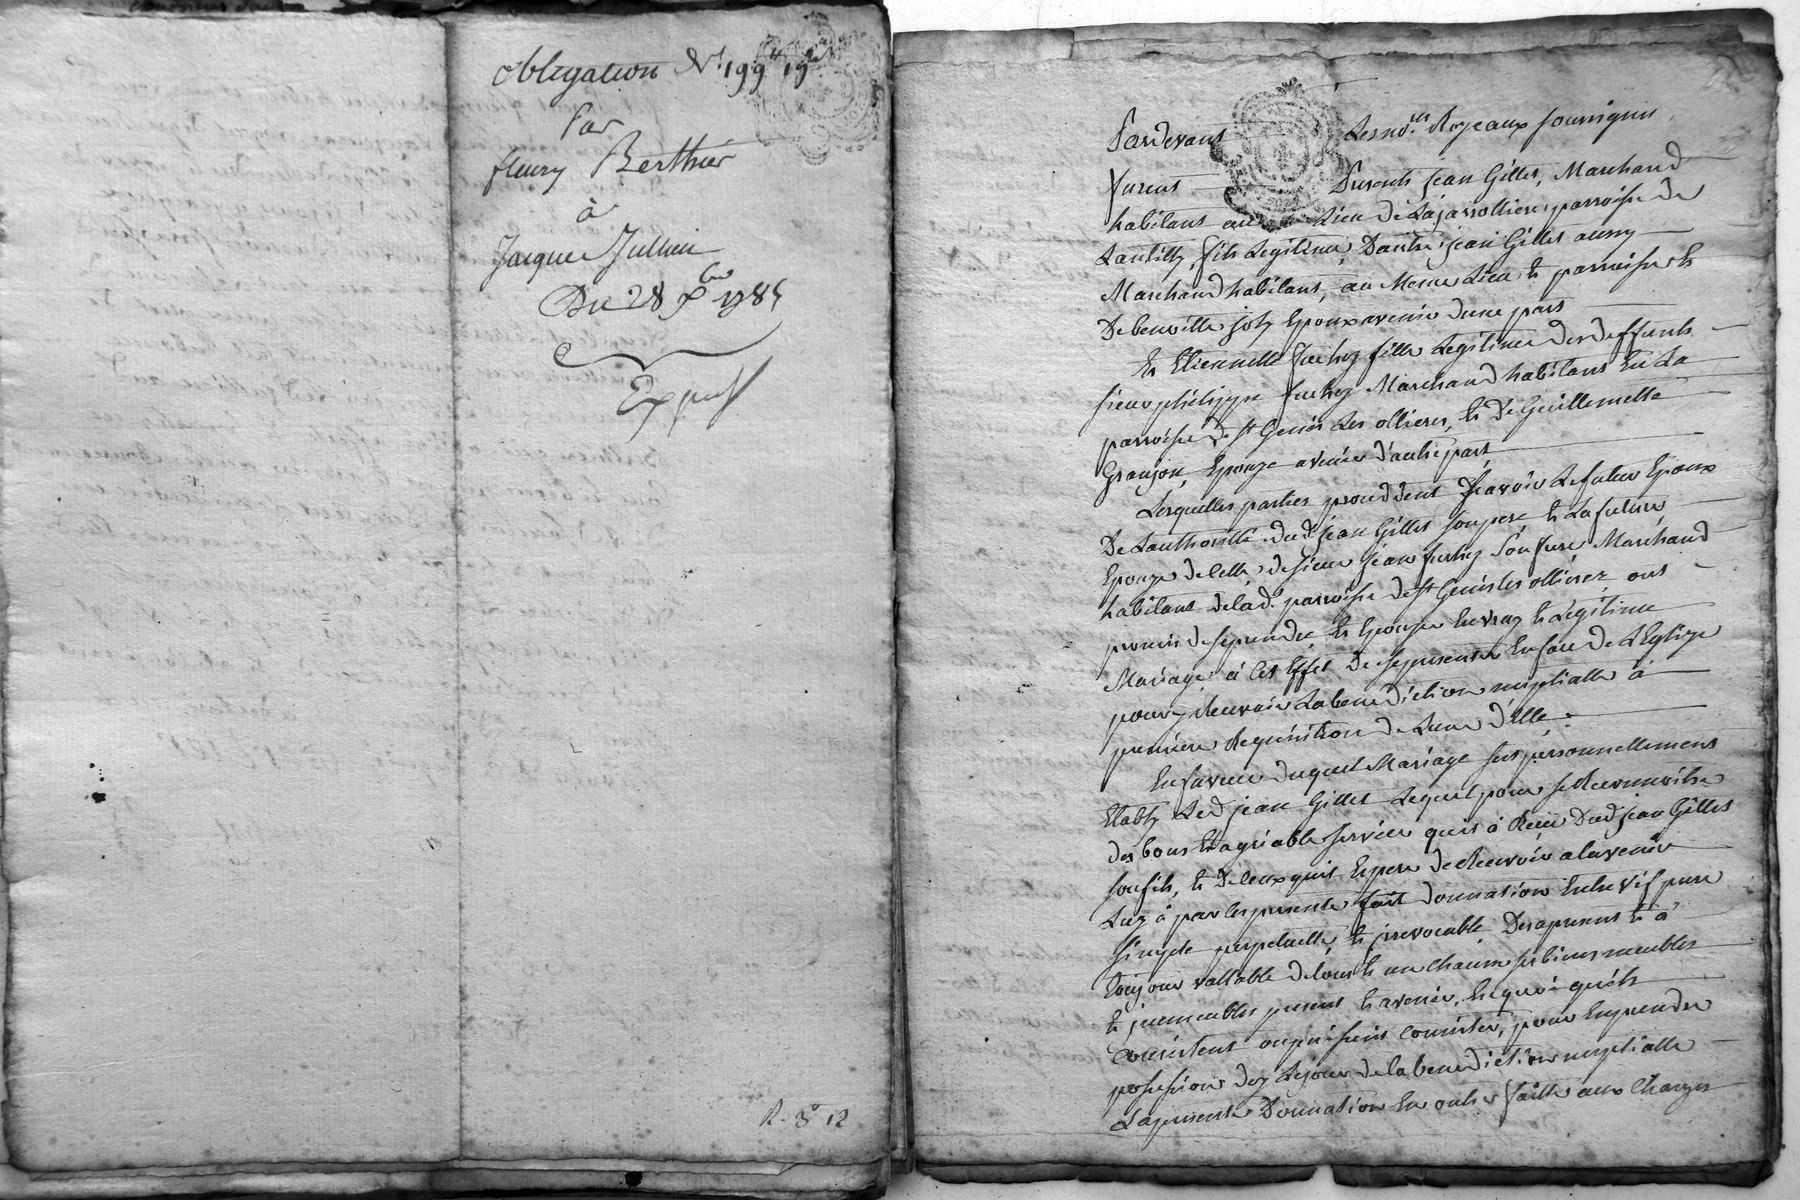 obligation De 199lt 19s
Par
fleury Berthier
à
Jacque Jullien
Du 28 Xbre 1785
Exped
R. 3o 12
Pardevant Les nores. Royeaux soussignés
furent Presents jean Gilles, Marchand
habitant au Lieu de Lajarrolliere parroisse de
Lantilly, fils Legitime Dautre jean Gilles aussy
Marchand habitant, au Meme Lieu et parroisse et
De benoitte joly Epoux avenir dune part
Et Etiennette fuchez fille Legitime des deffunts
sieur philippe fuchez Marchand habitant En La
parroisse de st Genis Les ollieres, et de Guillemette
Granjon, Epouze avenir d'autre part
Lesquelles parties procédent Sçavoir Le futur Epoux
De Lauthorité dud. jean Gilles son pere et La future
Epouze de celle de sieur jean fuchez son frere Marchand
habitant de lad. parroisse de st Genis les ollierez ont
promis de se prendre et Epouser En vray et Legitime
Mariage à cet Effet De se presenter En face de L'Eglize
pour y Recevoir La benediction nuptialle à
premiere Requisition de Lune d'Elle :
En faveur duquel Mariage fut personnellement
Etably Led. jean Gilles Lequel pour se Reconnoitre
des bons et agréable services quil à Reçu Dud. jean Gilles
son fils, et de ceux quil Espere de Recevoir a lavenir
Luy à par les presente fait donnation Entre vif pure
simple perpetuelle et jrrevocable Des apresent et à
toujour vallable de tous et un chacun ses biens meubles
et jmmeubles present et avenir, En quoi quils
Consistent ou puissent consister, pour En prendre
possession dez Lejour de la benediction nuptialle
La presente Donnation En outre faitte aux Charges